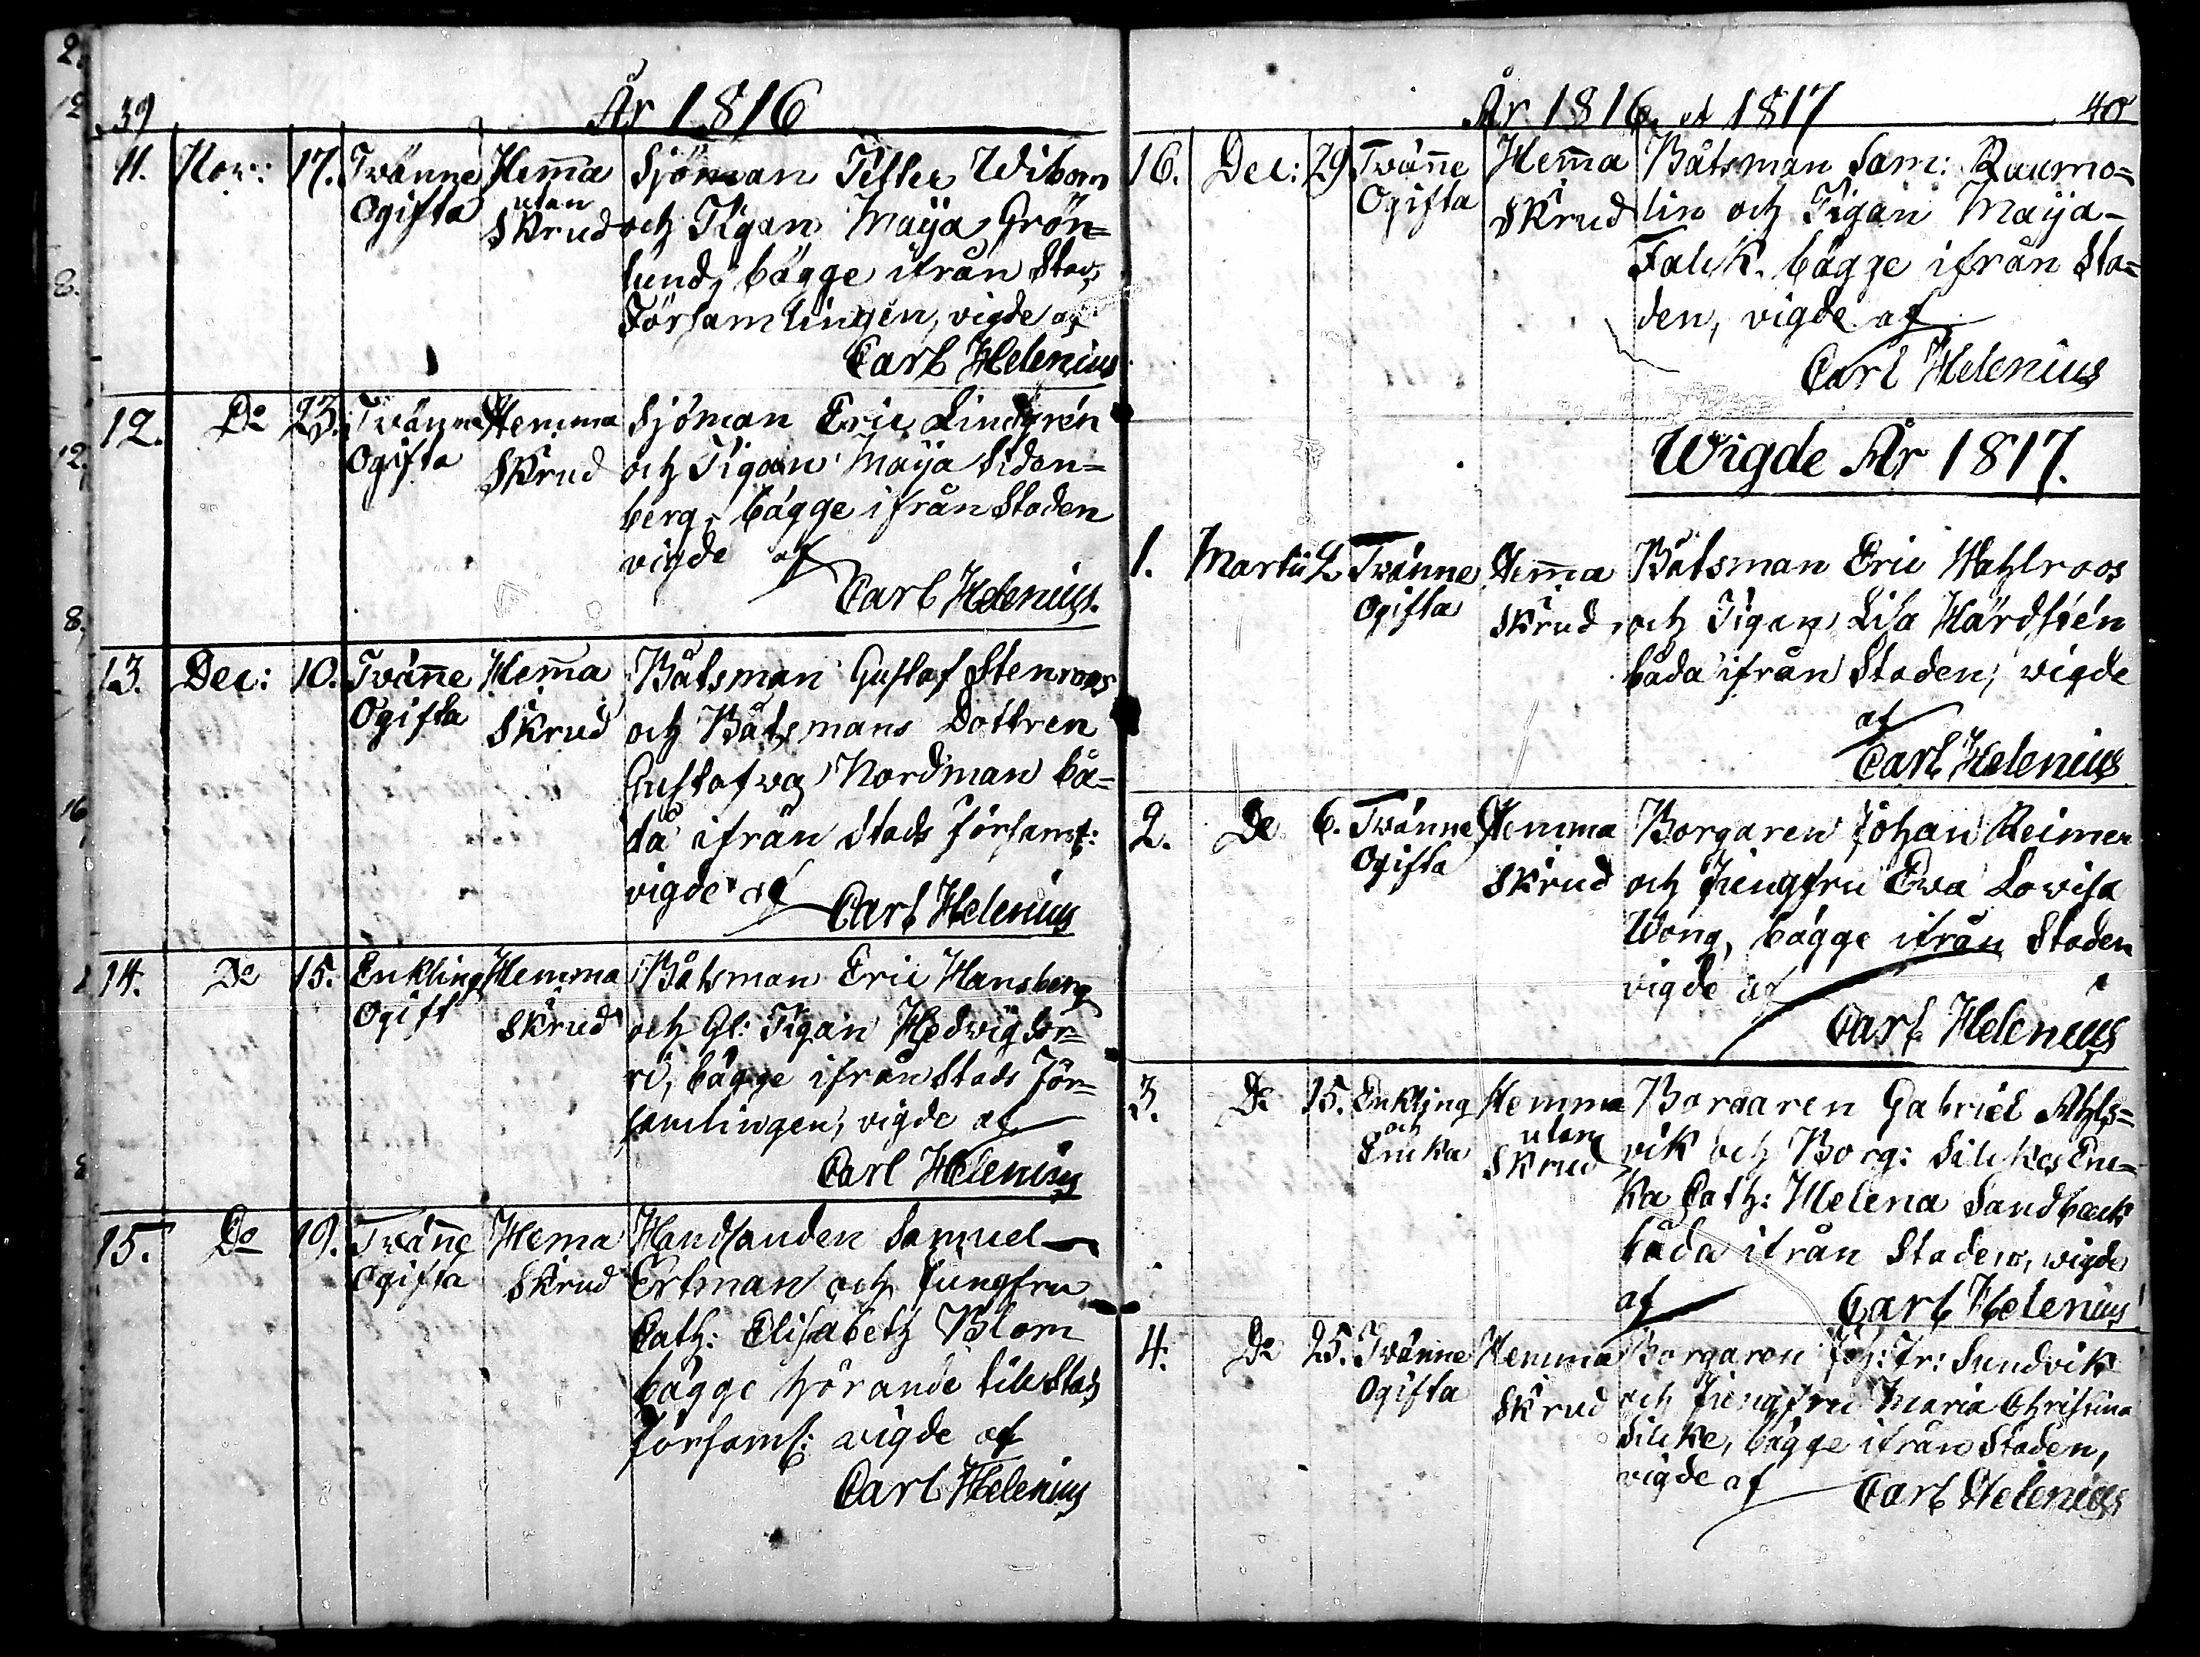 39
År 1816
11. Nov: 17. Twänne Hemma Sjöman Petter Wibom
Ogifta utan Skrud och Pigan Maija Grön=
lund, bägge ifrån Stads
Församlingen, vigde af
Carl Helenius
12. Do 23. Twänne Hemma Sjöman Eric Lindgrén
Ogifta Skrud och Pigan Maija Siden=
berg, bägge ifrån Staden
vigde af
Carl Helenius.
13. Dec: 10. Twänne Hemma Båtsman Gustaf Stenroos
Ogifta Skrud och Båtsmans Dottren
Gustafva Nordman bå=
da ifrån Stads Församl:
vigde af Carl Helenius
14. Do 15. Enkling Hemma Båtsman Eric Hansberg
Ogift Skrud och Gl: Pigan Hedvig Sor=
ri, bägge ifrån Stads För=
samlingen, vigde af
Carl Helenius
15. Do 19. Twänne Hema Handlanden Samuel
Ogifta Skrud Ertman och Jungfru
Cath: Elisabeth Blom
bägge hörande till Stads
Församl: vigde af
Carl Helenius
År 1816 et 1817
40
16. Dec: 29. Twänne Hemma Båtsman Sam: Raumo=
Ogifta Skrud lin och Pigan Maija
Falck. bägge ifrån Sta=
den, vigde af
Carl Helenius
Wigde År 1817.
1. Martii 2. Twänne Hemma Båtsman Eric Wahlroos
Ogifta Skrud och Pigan Lisa Härdstén
båda ifrån Staden, vigde
af
Carl Helenius
2. Do 6. Twänne Hemma Borgaren Johan Reimer
Ogifta Skrud och Jungfru Ewa Lowisa
Wong, bägge ifrån Staden
vigde af
Carl Helenius
3. Do 15. Enkling Hemma Borgaren Gabriel Ahls=
och Encka utan Skrud vik och Borg: Silckes Enc=
ka Cath: Helena Sandbeck
båda ifrån Staden, wigde
af Carl Helenius
4. Do 25. Twänne Hemma Borgaren Joh: Fr: Sundvik
Ogifta Skrud och Jungfru Maria Christina
Silcke, bägge ifrån Staden,
vigde af Carl Helenius